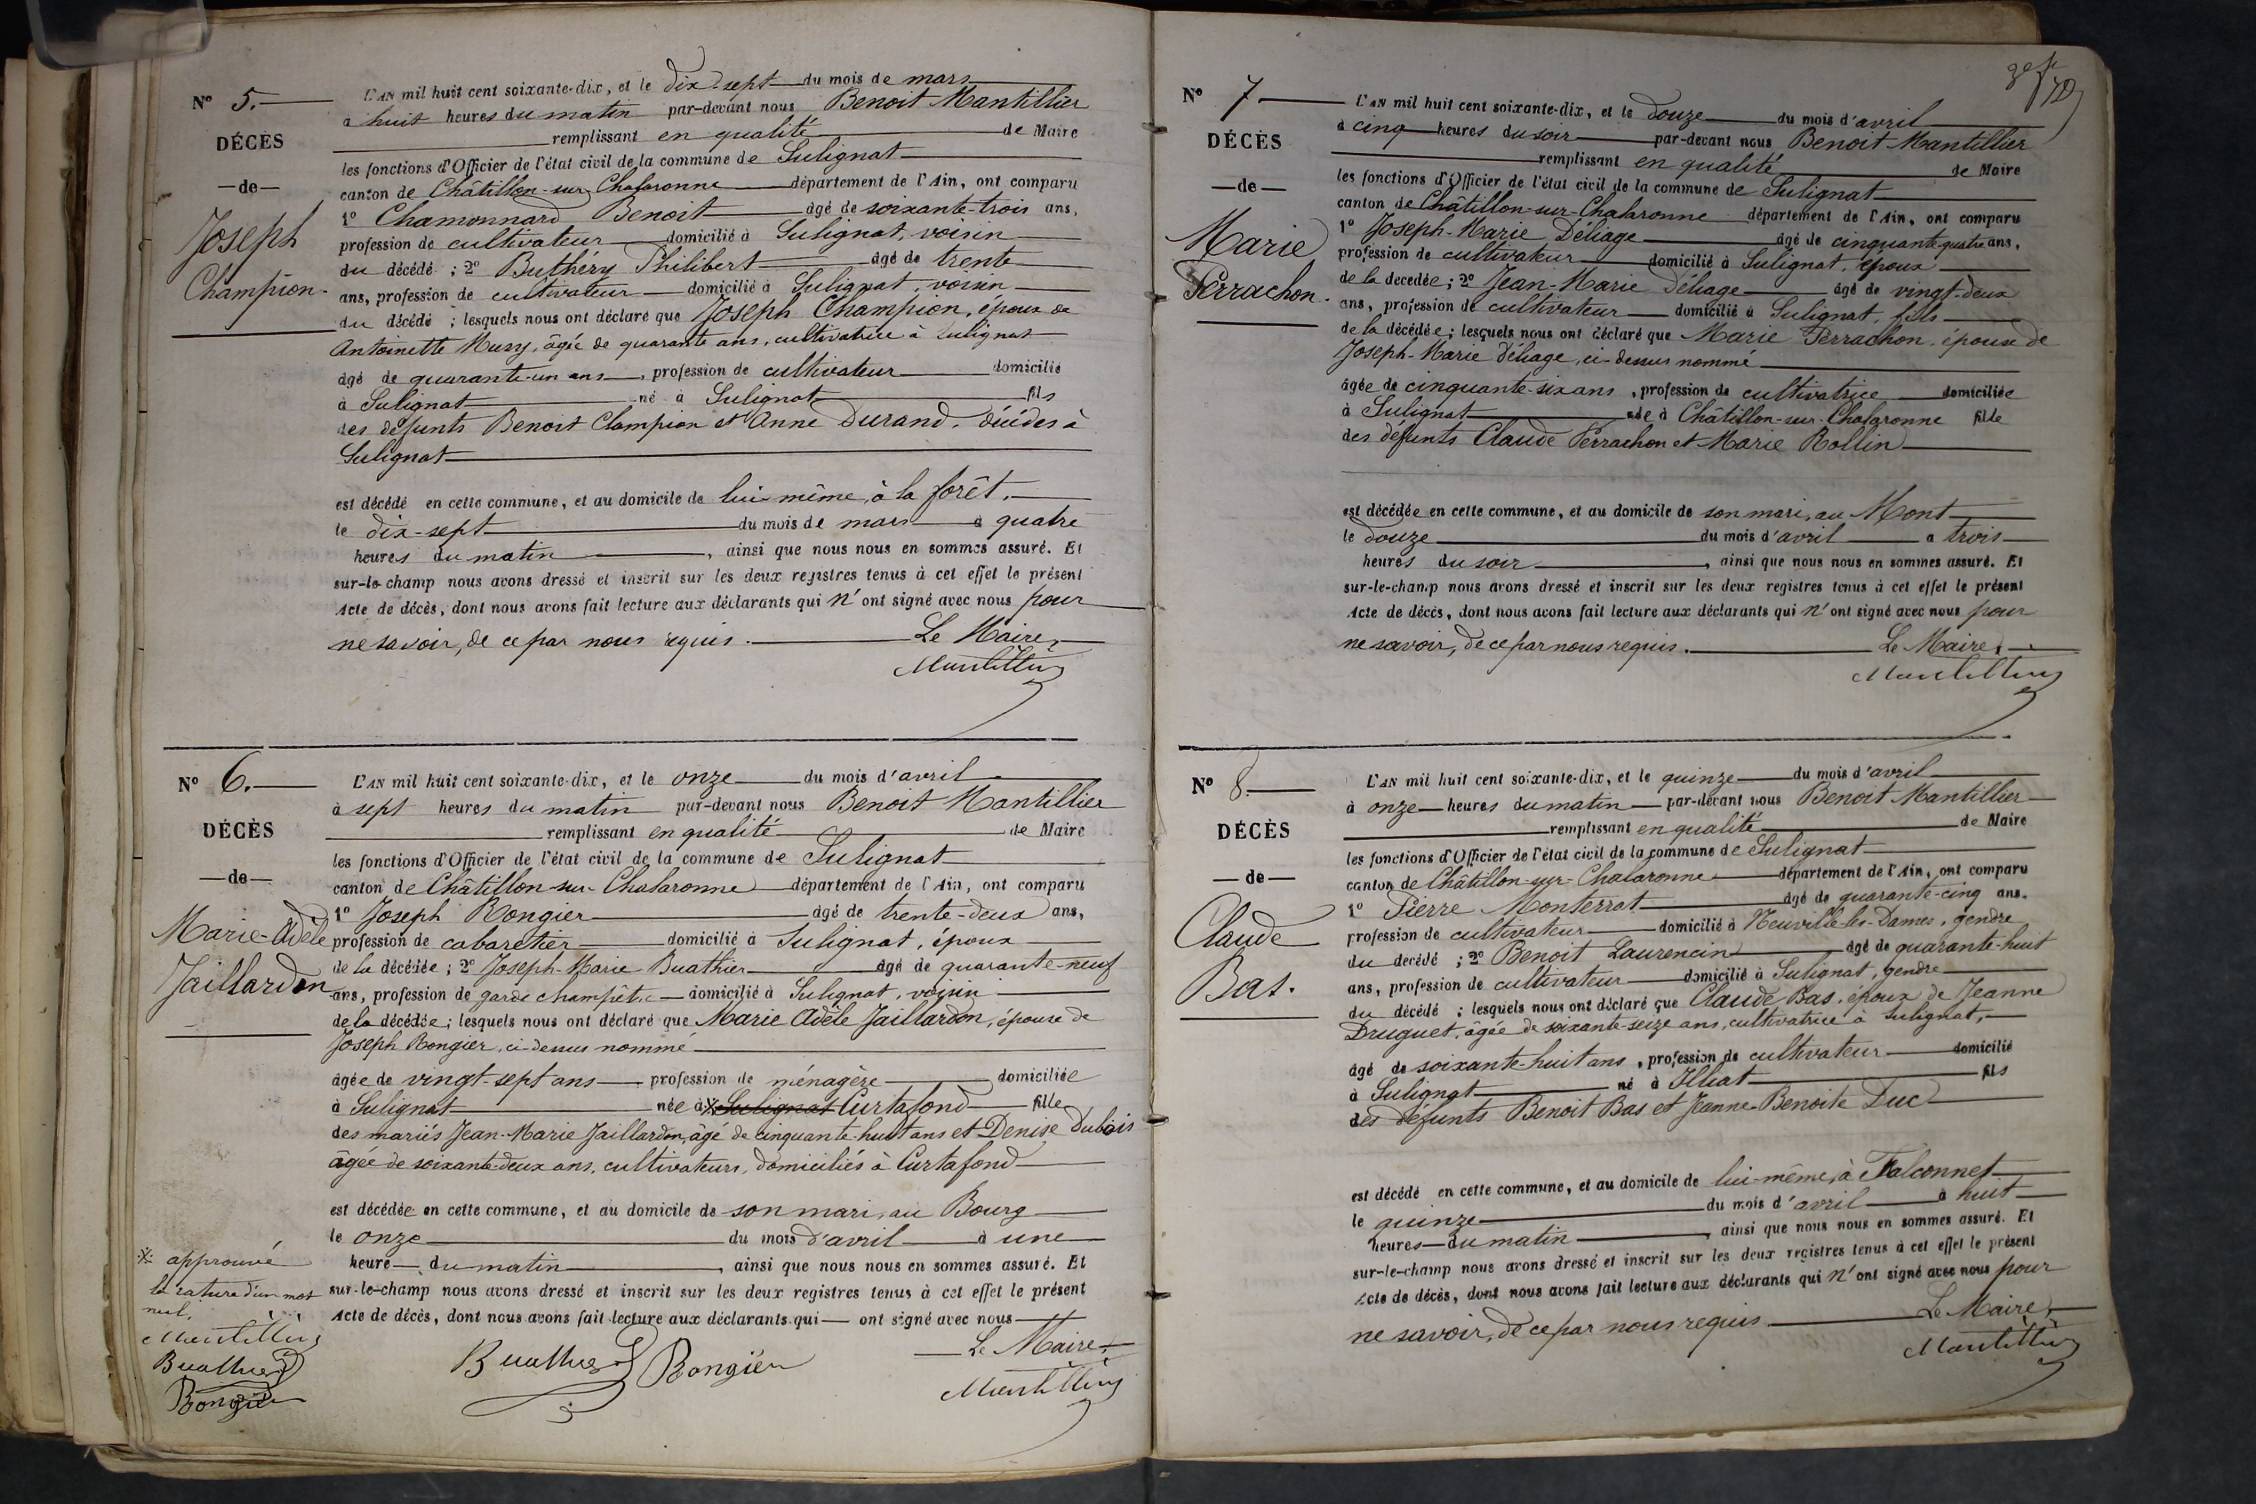 N° 5.
DÉCÈS
—de—
Joseph
Champion.
L'AN mil huit cent soixante-dix, et le dix-sept du mois de mars
à huit heures du matin par-devant nous Benoit Mantillier
remplissant en qualité de Maire
les fonctions d'Officier de l'état civil de la commune de Sulignat
canton de Châtillon-sur-Chalaronne département de l'Ain, ont comparu
1° Chamonnard Benoit âgé de soixante-trois ans,
profession de cultivateur domicilié à Sulignat, voisin
du décédé ; 2° Buthéry Philibert âgé de trente
ans, profession de cultivateur domicilié à Sulignat, voisin
du décédé ; lesquels nous ont déclaré que Joseph Champion, époux de
Antoinette Mury, âgée de quarante ans, cultivatrice à Sulignat
âgé de quarante-un ans, profession de cultivateur domicilié
à Sulignat né à Sulignat fils
des défunts Benoit Champion et Anne Durand, décédés à
Sulignat
est décédé en cette commune, et au domicile de lui-même, à la forêt,
le dix-sept du mois de mars à quatre
heures du matin, ainsi que nous nous en sommes assuré. Et
sur-le-champ nous avons dressé et inscrit sur les deux registres tenus à cet effet le présent
Acte de décès, dont nous avons fait lecture aux déclarants qui n'ont signé avec nous pour
ne savoir, de ce par nous requis. Le Maire,
Mantillier
N° 6.
DÉCÈS
—de—
Marie-Adèle
Jaillardon
L'AN mil huit cent soixante-dix, et le onze du mois d'avril
à sept heures du matin par-devant nous Benoit Mantillier
remplissant en qualité de Maire
les fonctions d'Officier de l'état civil de la commune de Sulignat
canton de Châtillon-sur-Chalaronne département de l'Ain, ont comparu
1° Joseph Rongier âgé de trente-deux ans,
profession de cabaretier domicilié à Sulignat, époux
de la décédée ; 2° Joseph-Marie Buathier âgé de quarante-neuf
ans, profession de garde champêtre domicilié à Sulignat, voisin
de la décédée ; lesquels nous ont déclaré que Marie Adèle Jaillardon, épouse de
Joseph Rongier, ci-dessus nommé
âgée de vingt-sept ans profession de ménagère domiciliée
à Sulignat née à Sulignat Curtafond fille
des mariés Jean-Marie Jaillardon, âgé de cinquante-huit ans et Denise Dubois
âgée de soixante-deux ans, cultivateurs, domiciliés à Curtafond
est décédée en cette commune, et au domicile de son mari, au Bourg
le onze du mois d'avril à une
heure du matin, ainsi que nous nous en sommes assuré. Et
sur-le-champ nous avons dressé et inscrit sur les deux registres tenus à cet effet le présent
Acte de décès, dont nous avons fait lecture aux déclarants qui ont signé avec nous
Le Maire,
Buathier Rongier
Mantillier
approuvé
la rature d'un mot
nul.
Mantillier
Buathier
Rongier
N° 7
DÉCÈS
—de—
Marie
Perrachon.
L'AN mil huit cent soixante-dix, et le douze du mois d'avril
à cinq heures du soir par-devant nous Benoit Mantillier
remplissant en qualité de Maire
les fonctions d'Officier de l'état civil de la commune de Sulignat
canton de Châtillon-sur-Chalaronne département de l'Ain, ont comparu
1° Joseph-Marie Déliage âgé de cinquante-quatre ans,
profession de cultivateur domicilié à Sulignat, époux
de la décédée ; 2° Jean-Marie Déliage âgé de vingt-deux
ans, profession de cultivateur domicilié à Sulignat, fils
de la décédée ; lesquels nous ont déclaré que Marie Perrachon, épouse de
Joseph-Marie Déliage, ci-dessus nommé
âgée de cinquante-six ans, profession de cultivatrice domiciliée
à Sulignat née à Châtillon-sur-Chalaronne fille
des défunts Claude Perrachon et Marie Rollin
est décédée en cette commune, et au domicile de son mari, au Mont
le douze du mois d'avril à trois
heures du soir, ainsi que nous nous en sommes assuré. Et
sur-le-champ nous avons dressé et inscrit sur les deux registres tenus à cet effet le présent
Acte de décès, dont nous avons fait lecture aux déclarants qui n'ont signé avec nous pour
ne savoir, de ce par nous requis. Le Maire,
Mantillier
N° 8.
DÉCÈS
—de—
Claude
Bas.
L'AN mil huit cent soixante-dix, et le quinze du mois d'avril
à onze heures du matin par-devant nous Benoit Mantillier
remplissant en qualité de Maire
les fonctions d'Officier de l'état civil de la commune de Sulignat
canton de Châtillon-sur-Chalaronne département de l'Ain, ont comparu
1° Pierre Monterrat âgé de quarante-cinq ans.
profession de cultivateur domicilié à Neuville-les-Dames, gendre
du décédé ; 2° Benoit Laurencin âgé de quarante-huit
ans, profession de cultivateur domicilié à Sulignat, gendre
du décédé ; lesquels nous ont déclaré que Claude Bas, époux de Jeanne
Druguet, âgée de soixante-seize ans, cultivatrice à Sulignat,
âgé de soixante-huit ans, profession de cultivateur domicilié
à Sulignat né à Illiat fils
des défunts Benoit Bas et Jeanne-Benoite Duc
est décédé en cette commune, et au domicile de lui-même, à Falconnet
le quinze du mois d'avril à huit
heures du matin, ainsi que nous nous en sommes assuré. Et
sur-le-champ nous avons dressé et inscrit sur les deux registres tenus à cet effet le présent
Acte de décès, dont nous avons fait lecture aux déclarants qui n'ont signé avec nous pour
ne savoir, de ce par nous requis Le Maire,
Mantillier